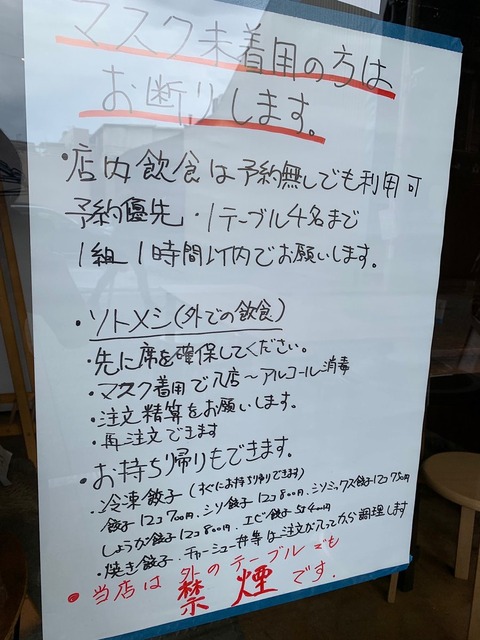 マスク未着用の方は
お断りします。
・店内飲食は予約無しでも利用可
予約優先・1テーブル4名まで
1組 1時間以内でお願いします。
・ソトメシ(外での飲食)
・先に席を確保してください。
・マスク着用で入店〜アルコール消毒
・注文精算をお願いします。
・再注文できます
・お持ち帰りもできます。
・冷凍餃子(すぐにお持ち帰りできます)
餃子12コ700円、シソ餃子12コ800円、シソミックス餃子12コ750円
しょうが餃子12コ800円、エビ餃子5コ400円
・焼き餃子、チャーシュー丼等は注文が入ってから調理します
・当店は外のテーブルでも
禁煙です。